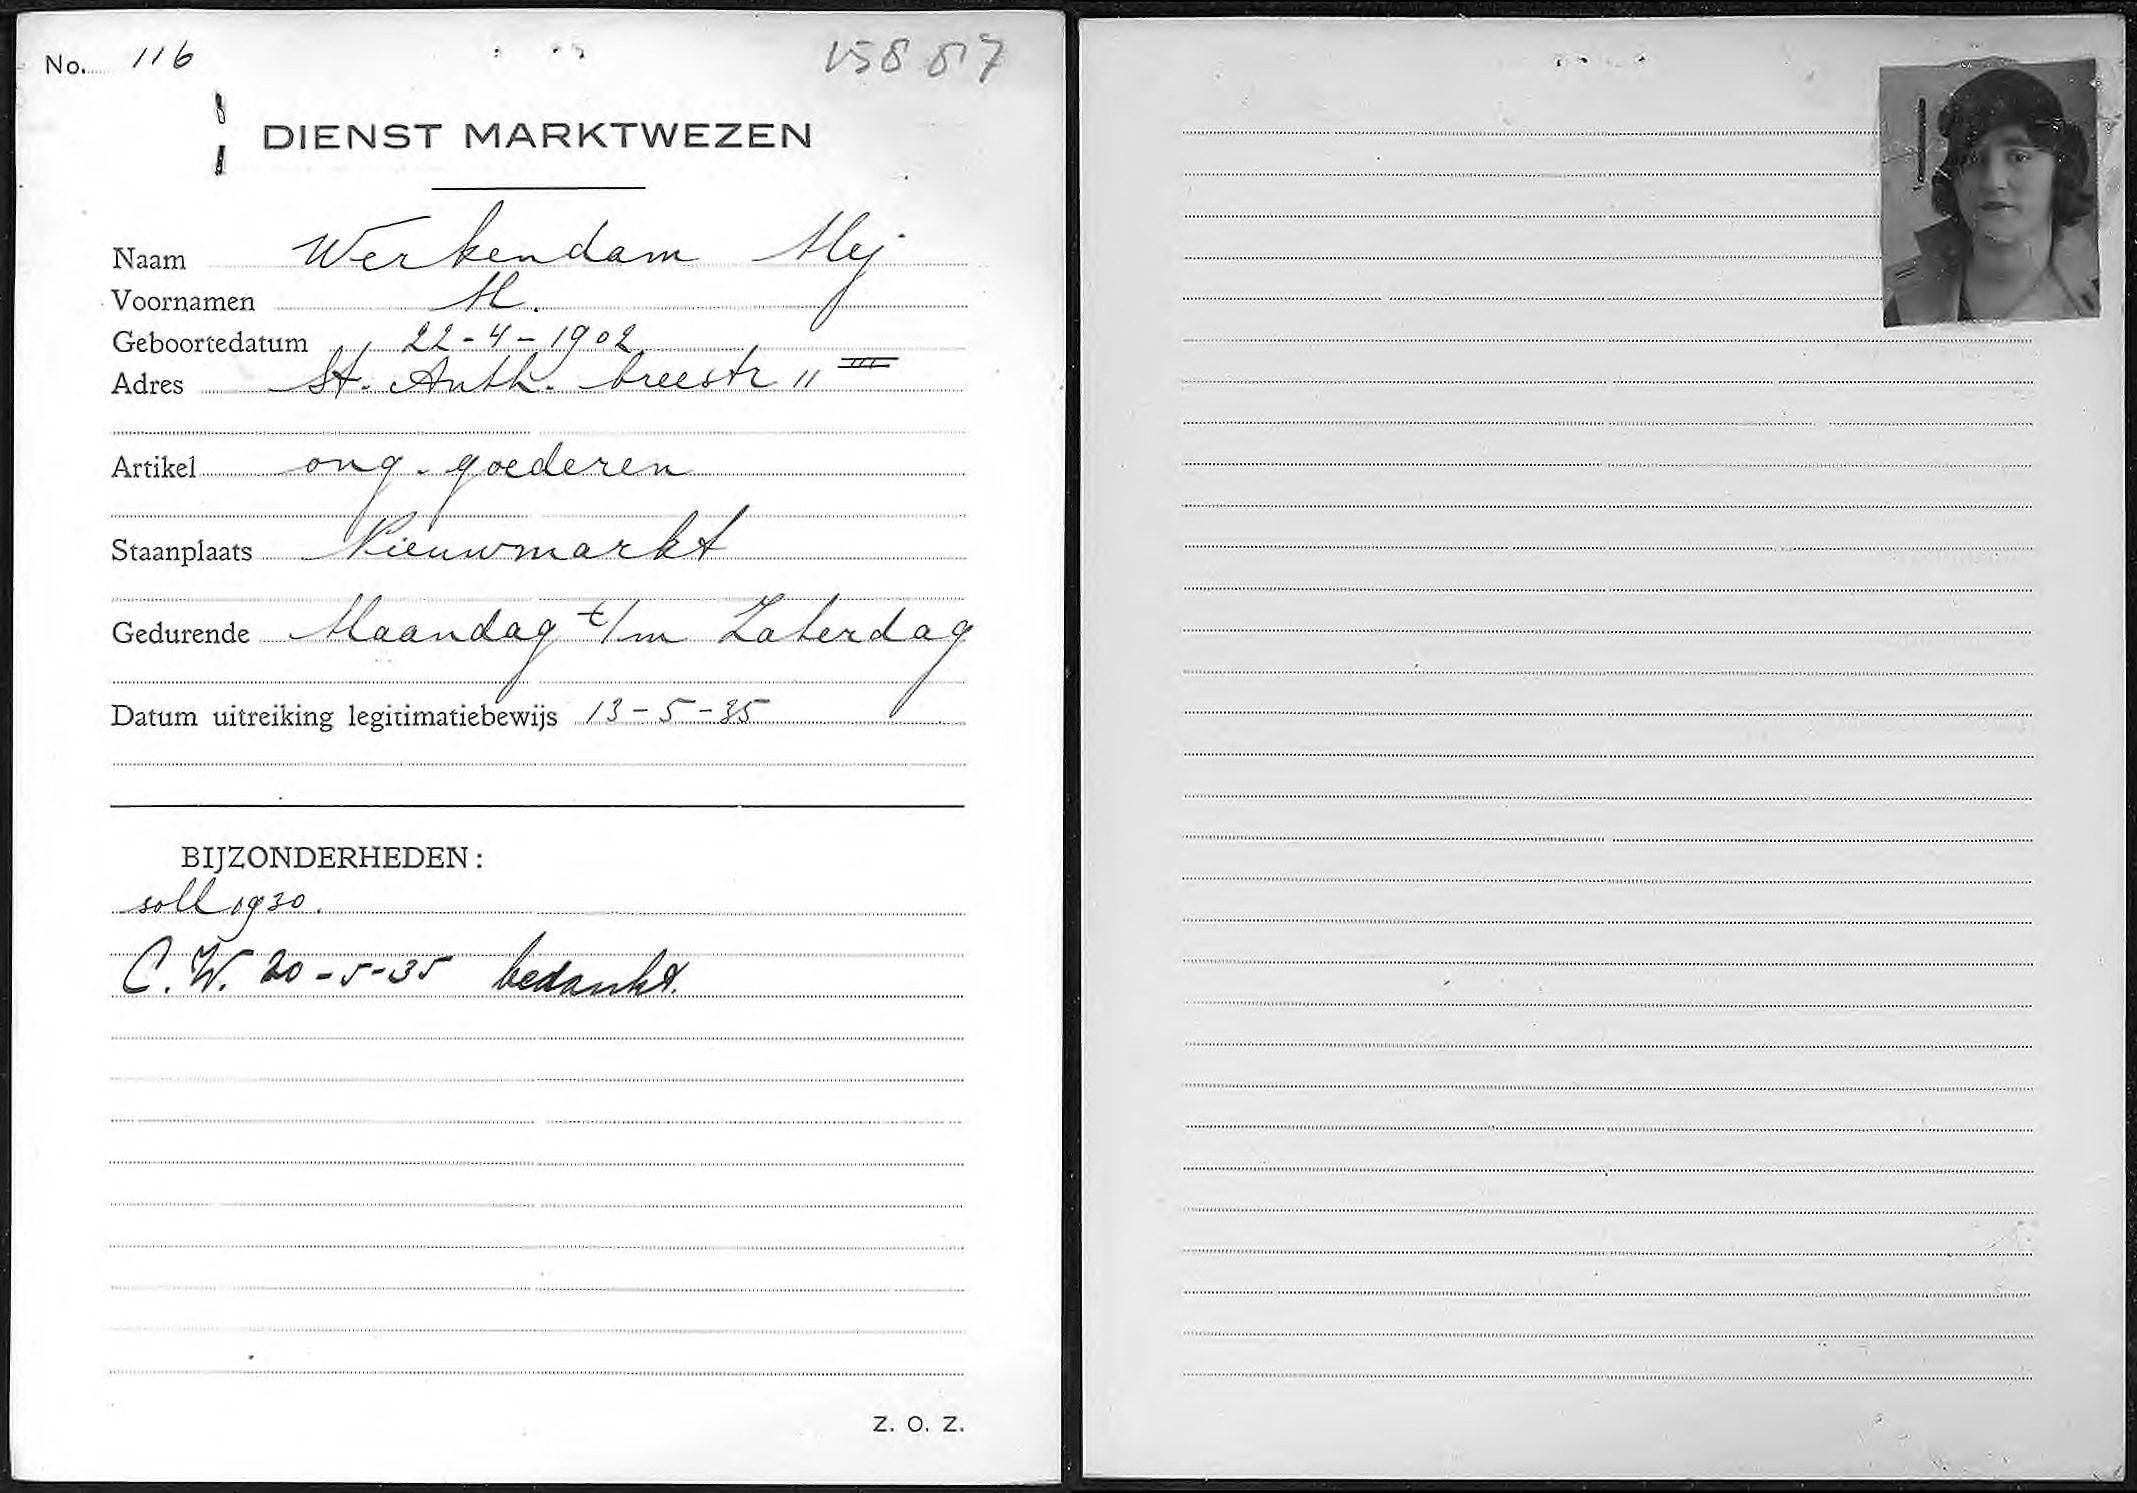 No. 116
DIENST MARKTWEZEN
Naam Werkendam Mej
Voornamen M.
Geboortedatum 22-4-1902
Adres St. Anth. breestr 11 III
Artikel ong. goederen
Staanplaats Nieuwmarkt
Gedurende Maandag t/m Zaterdag
Datum uitreiking legitimatiebewijs 13-5-35
BIJZONDERHEDEN:
soll 1930.
C.W. 20-5-35 bedankt.
Z. O. Z.